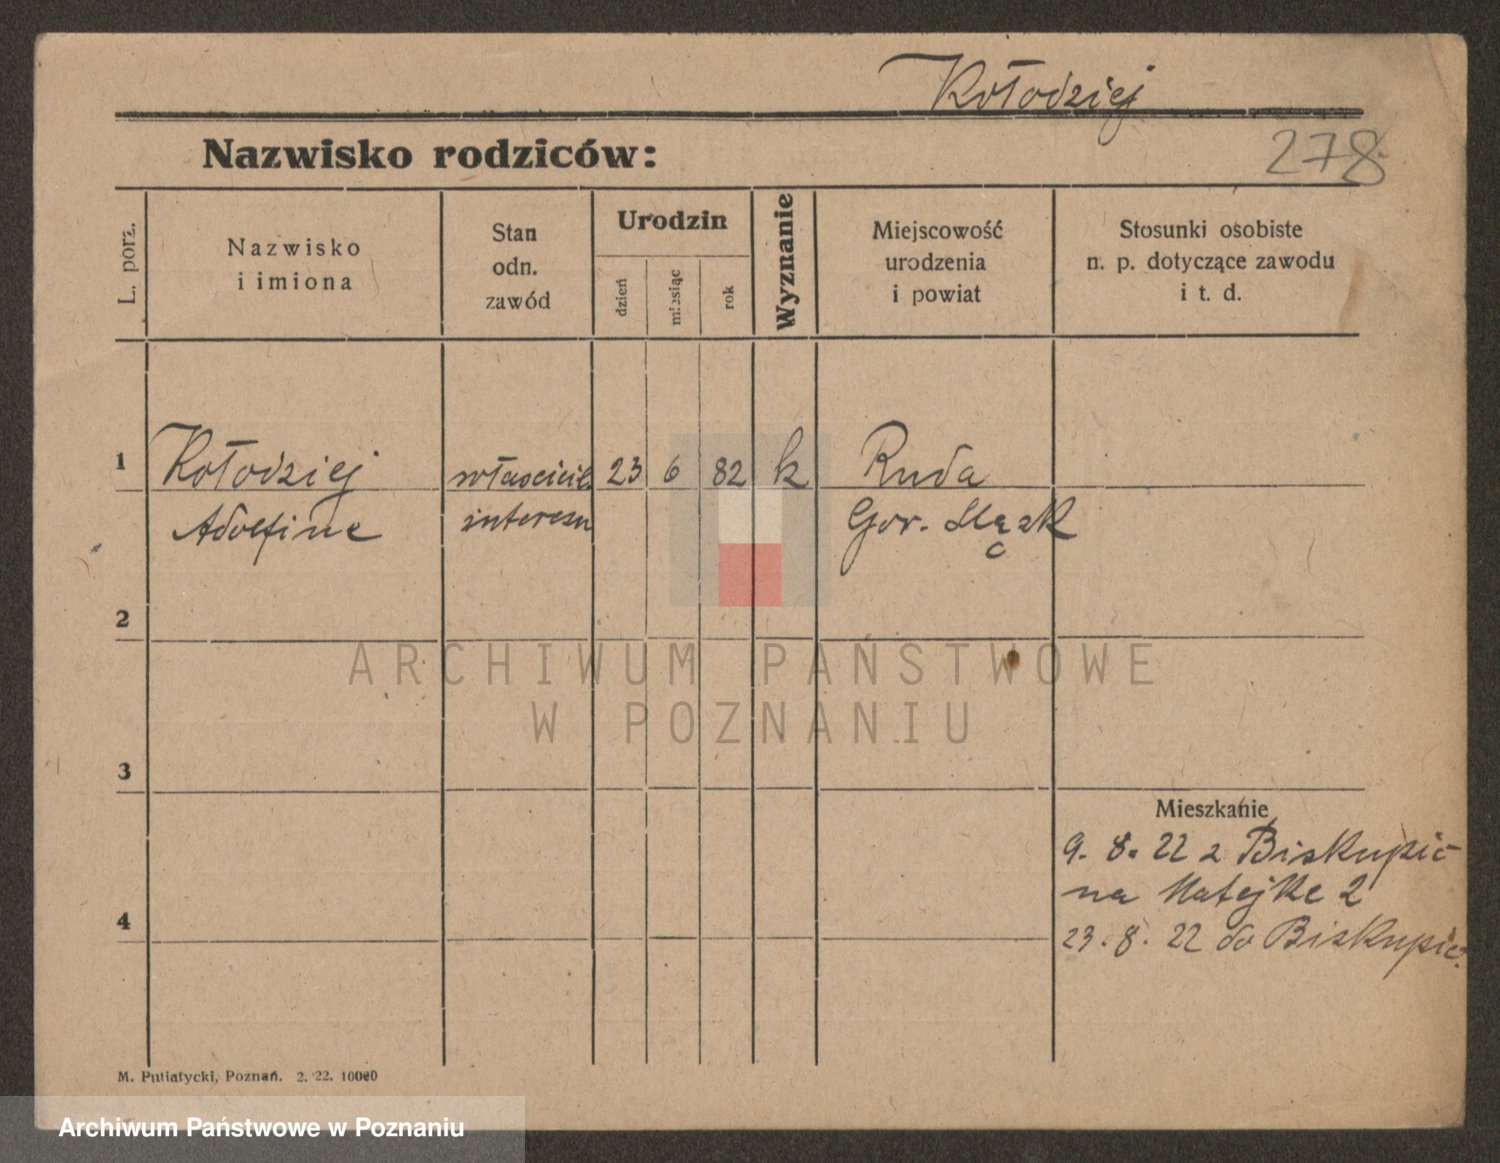 Kołodziej
Nazwisko rodziców:
278
L. porz.
Nazwisko
i imiona
Stan
odn.
zawód
Urodzin
dzień
miesiąc
rok
Wyznanie
Miejscowość
urodzenia
i powiat
Stosunki osobiste
n. p. dotyczące zawodu
i t. d.
1 Kołodziej właściciel. 23 6 82 k Ruda
Adolfine interesu Gor. Sląsk
2
ARCHIWUM PAŃSTWOWE
W POZNANIU
3
Mieszkanie
9. 8. 22 z Biskupic
na Matejke 2
4
23. 8. 22 do Biskupic.
M. Putiatycki, Poznań. 2. 22. 10000
Archiwum Państwowe w Poznaniu